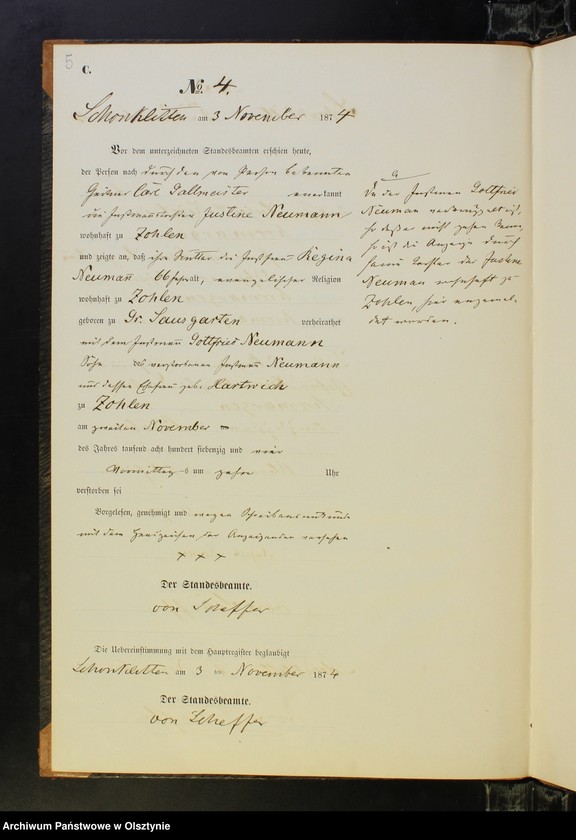 5
C.
No. 4.
Schönklitten am 3 November 1874
Vor dem unterzeichneten Standesbeamten erschien heute,
der Person nach durch den von Person bekannten
Gärtner Carl Dallmeister anerkannt
die Instmannstochter Justine Neumann
wohnhaft zu Zohlen
und zeigte an, daß ihre Mutter die Instfrau Regina
Neumann 66 Jahr alt, evangelischer Religion
wohnhaft zu Zohlen
geboren zu Gr. Sausgarten verheirathet
mit dem Instmann Gottfried Neumann
Sohn des verstorbenen Instmann Neumann
und dessen Ehefrau geb. Hartwich
zu Zohlen
am zweiten November
des Jahres tausend acht hundert siebenzig und vier
Vormittags um zehn Uhr
verstorben sei
Vorgelesen, genehmigt und wegen Schreibensunkunde
mit dem Handzeichen der Anzeigenden versehen
+ + +
Der Standesbeamte.
von Scheffer
Die Uebereinstimmung mit dem Hauptregister beglaubigt
Schönklitten am 3 November 1874
Der Standesbeamte.
von Scheffer
Da der Instmann Gottfried
Neumann verkrüppelt ist,
so daß er nicht gehen kann,
so ist die Anzeige durch
seine Tochter die Justine
Neumann wohnhaft zu
Zohlen, hier angemel-
det worden.
Archiwum Państwowe w Olsztynie